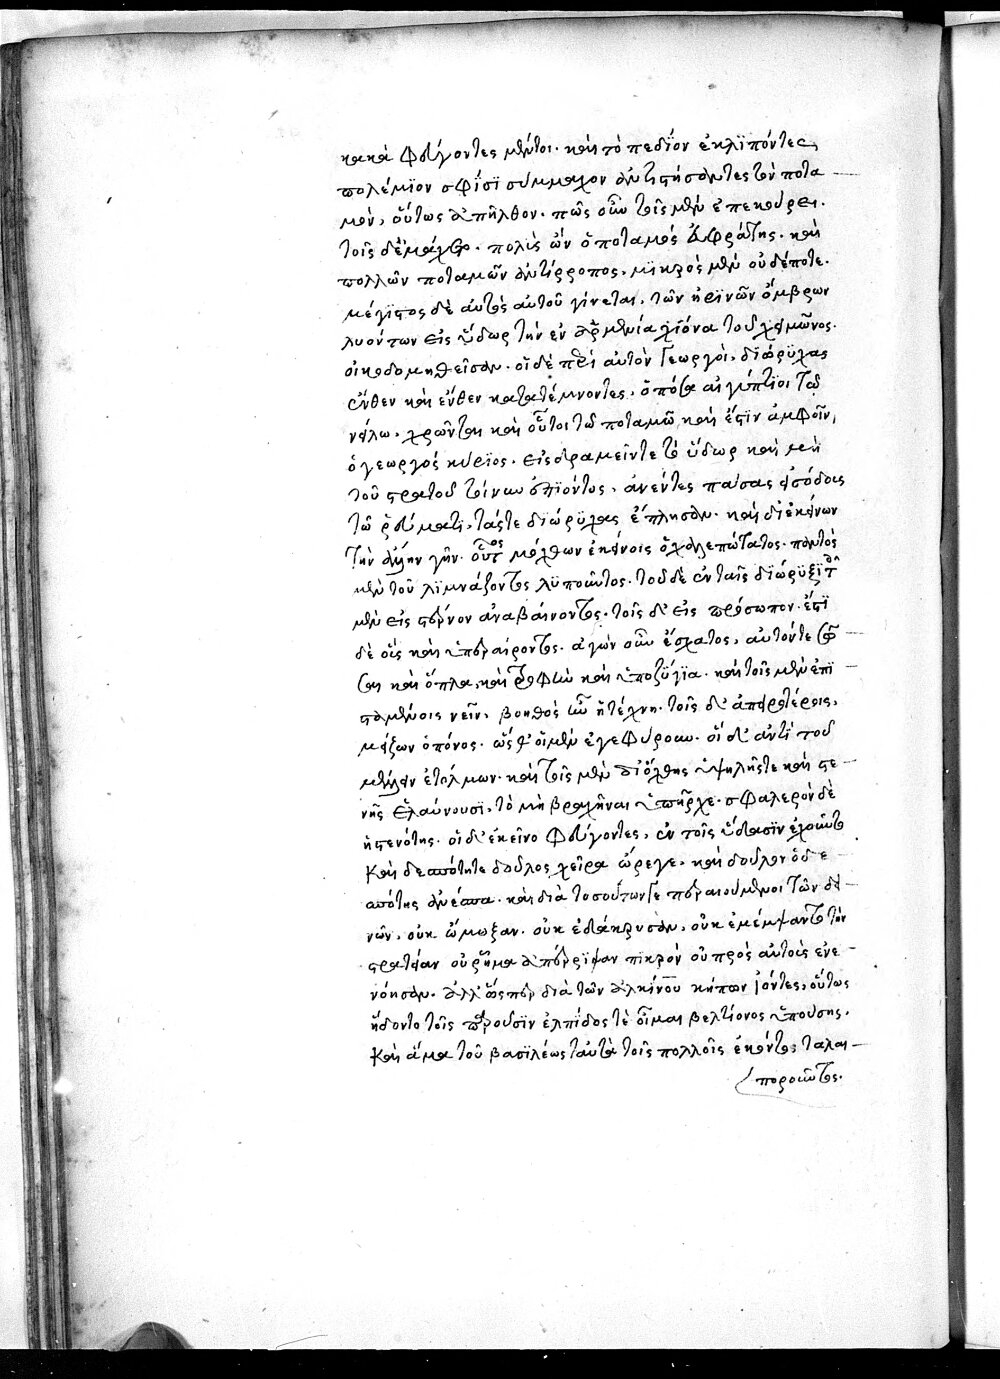 κακὰ φεύγοντες μέντοι. καὶ τὸ πεδίον ἐκλϊπόντες
πολέμϊον σφίσϊ σύμμαχον ἀντιστήσαντες τὸν ποτα
μὸν, οὕτως ἀπῆλθον. πῶς οὖν τοῖς μὲν ἐπεκούρει.
τοῖς δ' ἐμάχετο. πολὺς ὢν ὁ ποταμὸς εὐφράτης. καὶ
πολλῶν ποταμῶν ἀντίρροπος, μϊκρὸς μὲν οὐδέποτε.
μέγϊστος δὲ αὐτὸς αὐτοῦ γίνεται, τῶν ἠρϊνῶν ὄμβρων
λυόντων εἰς ὕδωρ τὴν ἐν ἀρμενία χϊόνα τοῦ χειμῶνος.
οἰκοδομηθεῖσαν. οἱ δὲ περὶ αὐτὸν γεωργοὶ, διώρϋχας
ἔνθεν καὶ ἔνθεν κατατέμνοντες, ὁπόσα αἰγύπτϊοι τῶ
νείλω, χρῶνται καὶ οὗτοι τῶ ποταμῶ καὶ ἔστϊν ἀμφοῖν,
ὁ γεωργὸς κύρϊος. εἰσδραμεῖν τε τὸ ὕδωρ καὶ μὴ
τοῦ στρατοῦ τοίνυν ἀπϊόντος, ἀνέντες πάσας εἰσόδους
τῶ ῥεύματϊ, τάς τε διώρϋχας ἔπλησαν. καὶ δι' ἐκείνων
τὴν ἄλλην γῆν. οὗτος μόχθων ἐκείνοις ὁ χαλεπώτατος. παντὸς
μὲν τοῦ λϊμνάζοντος λϋποῦντος. τοῦ δὲ ἐν ταῖς διώρϋξϊ τὸν
μὲν εἰς στέρνον ἀναβαίνοντος. τοῖς δ' εἰς πρόσωπον. ἔστϊ
δὲ οἷς καὶ ὑπεραίροντος. ἀγὼν οὖν ἔσχατος, αὑτούς τε σῶ
σαι καὶ ὅπλα, καὶ τροφὴν καὶ ὑποζύγϊα. καὶ τοῖς μὲν ἐπϊ
σταμένοις νεῖν, βοηθὸς ἦν ἡ τέχνη. τοῖς δ' ἀπειροτέροις,
μείζων ὁ πόνος. ὥσθ' οἱ μὲν ἐγεφύρουν. οἱ δ' ἀντὶ τοῦ
μένειν ἐτόλμων. καὶ τοῖς μὲν δι' ὄχθης ὑψηλῆς τε καὶ στε
νῆς ἐλαύνουσϊ, τὸ μὴ βραχῆναι ὑπῆρχε. σφαλερὸν δὲ
ἡ στενότης. οἱ δ' ἐκεῖνο φεύγοντες, ἐν τοῖς ὕδασϊν ἐχοῦντο
καὶ δεσπότη τε δοῦλος χεῖρα ὤρεγε. καὶ δοῦλον ὁ δε
σπότης ἀνέσπα. καὶ διὰ τοσούτων γε περαιούμενοι τῶν δει
νῶν, οὐκ ὤμωξαν. οὐκ ἐδάκρυσαν, οὐκ ἐμέμψαντο τὴν
στρατείαν οὐ ῥῆμα ἀπέρρϊψαν πϊκρὸν οὐ πρὸς αὑτοὺς ἐνε
νόησαν. ἀλλ' ὥσπερ διὰ τῶν ἀλκίνου κήπων ἰόντες, οὕτως
ἥδοντο τοῖς παροῦσϊν ἐλπίδος τὲ οἶμαι βελτίονος ὑπούσης.
καὶ ἅμα τοῦ βασϊλέως ταὐτὰ τοῖς πολλοῖς ἑκόντος ταλαι
ποροῦντος.